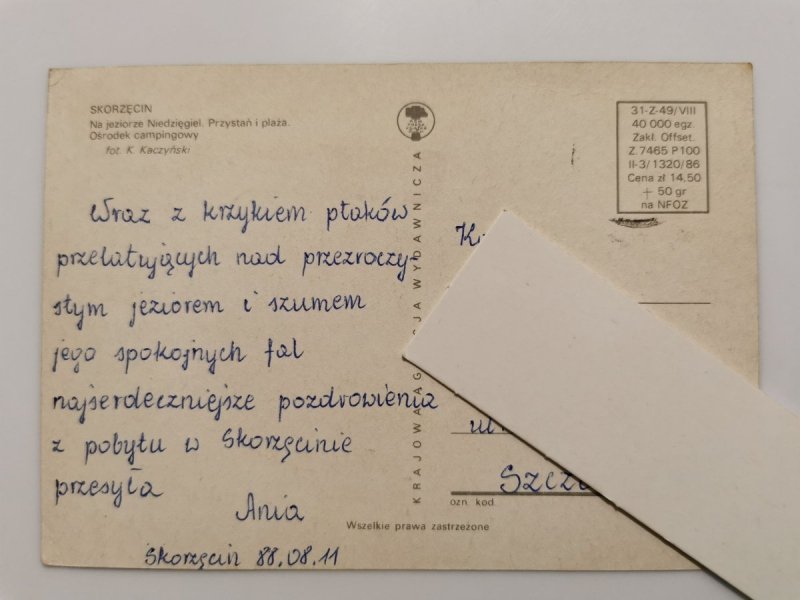 SKORZĘCIN
Na jeziorze Niedzięgiel. Przystań i plaża.
Ośrodek campingowy
fot. K. Kaczyński
Wraz z krzykiem ptaków
przelatujących nad przezroczy-
stym jeziorem i szumem
jego spokojnych fal
najserdeczniejsze pozdrowienia
z pobytu w Skorzęcinie
przesyła
Ania
Skorzęcin 88.08.11
KRAJOWA AGENCJA WYDAWNICZA
31-Z-49/VIII
40 000 egz.
Zakł. Offset.
Z. 7465 P 100
II-3/1320/86
Cena zł 14,50
+ 50 gr
na NFOZ
ozn. kod
Wszelkie prawa zastrzeżone